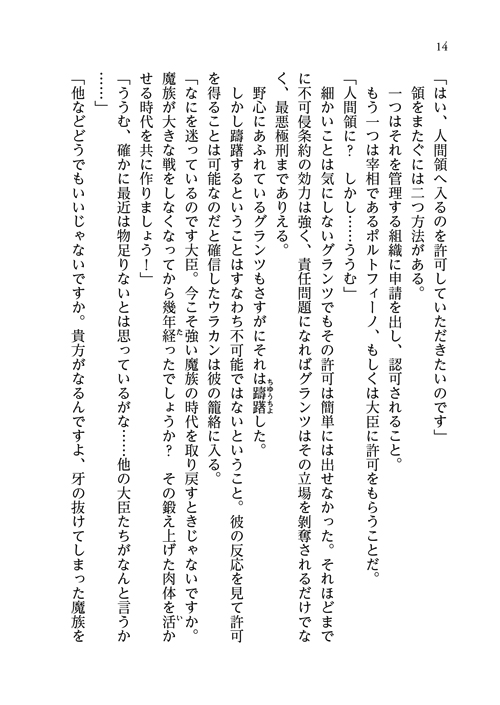 14
「はい、人間領へ入るのを許可していただきたいのです」
　領をまたぐには二つ方法がある。
　一つはそれを管理する組織に申請を出し、認可されること。
　もう一つは宰相であるポルトフィーノ、もしくは大臣に許可をもらうことだ。
「人間領に？　しかし……ううむ」
　細かいことは気にしないグランツでもその許可は簡単には出せなかった。それほどまで
に不可侵条約の効力は強く、責任問題になればグランツはその立場を剝奪されるだけでな
く、最悪極刑までありえる。
　野心にあふれているグランツもさすがにそれは躊躇した。
　しかし躊躇するということはすなわち不可能ではないということ。彼の反応を見て許可
を得ることは可能なのだと確信したウラカンは彼の籠絡に入る。
「なにを迷っているのです大臣。今こそ強い魔族の時代を取り戻すときじゃないですか。
魔族が大きな戦をしなくなってから幾年経ったでしょうか？　その鍛え上げた肉体を活か
せる時代を共に作りましょう！」
「ううむ、確かに最近は物足りないとは思っているがな……他の大臣たちがなんと言うか
……」
「他などどうでもいいじゃないですか。貴方がなるんですよ、牙の抜けてしまった魔族を